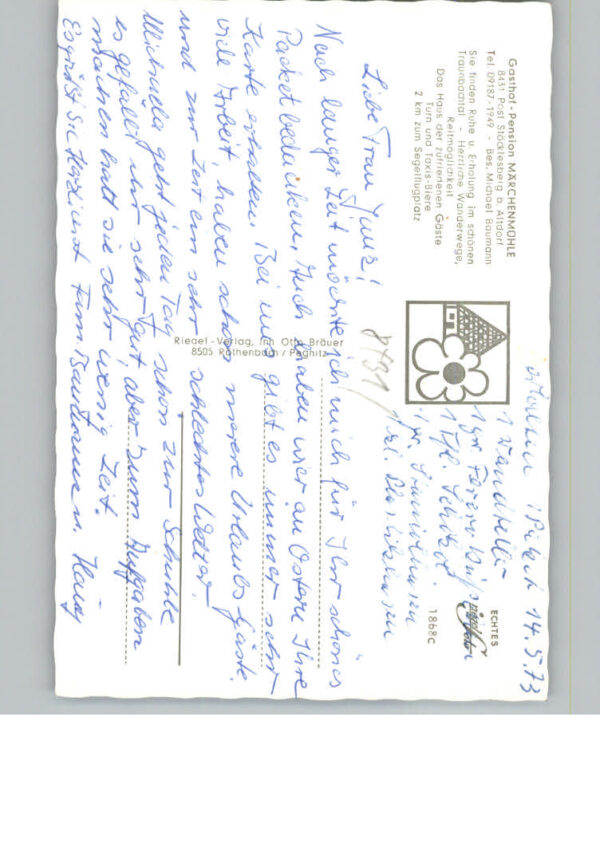 Gasthof - Pension MÄRCHENMÜHLE
8431 Post Stöcklesberg b. Altdorf
Tel. 09187-1949 - Bes. Michael Baumann
Sie finden Ruhe u. Erholung im schönen
Traunbachtal - Herrliche Wanderwege,
Reitmöglichkeit
Das Haus der zufriedenen Gäste
Turn und Taxis-Biere
2 km zum Segelflugplatz
Liebe Frau
Nach langer Zeit möchte ich mich für Ihr schönes
Packet bedanken, Auch haben wir an Ostern Ihre
Karte erhalten. Bei uns gibt es immer sehr
viele Arbeit, haben schon Urlaubs Gäste.
und zur Zeit ein sehr schlechtes Wetter.
Michaela geht jeden Tag schon zur Schuhle
es gefällt ihr sehr gut aber zum Aufgaben
machen hatt sie sehr wenig Zeit.
Es grüßt Sie Herzlichst Fam. Baumann
Riegel-Verlag, Inh. Otto Bräuer
8505 Röthenbach / Pegnitz
14.5.73
ECHTES
1868c